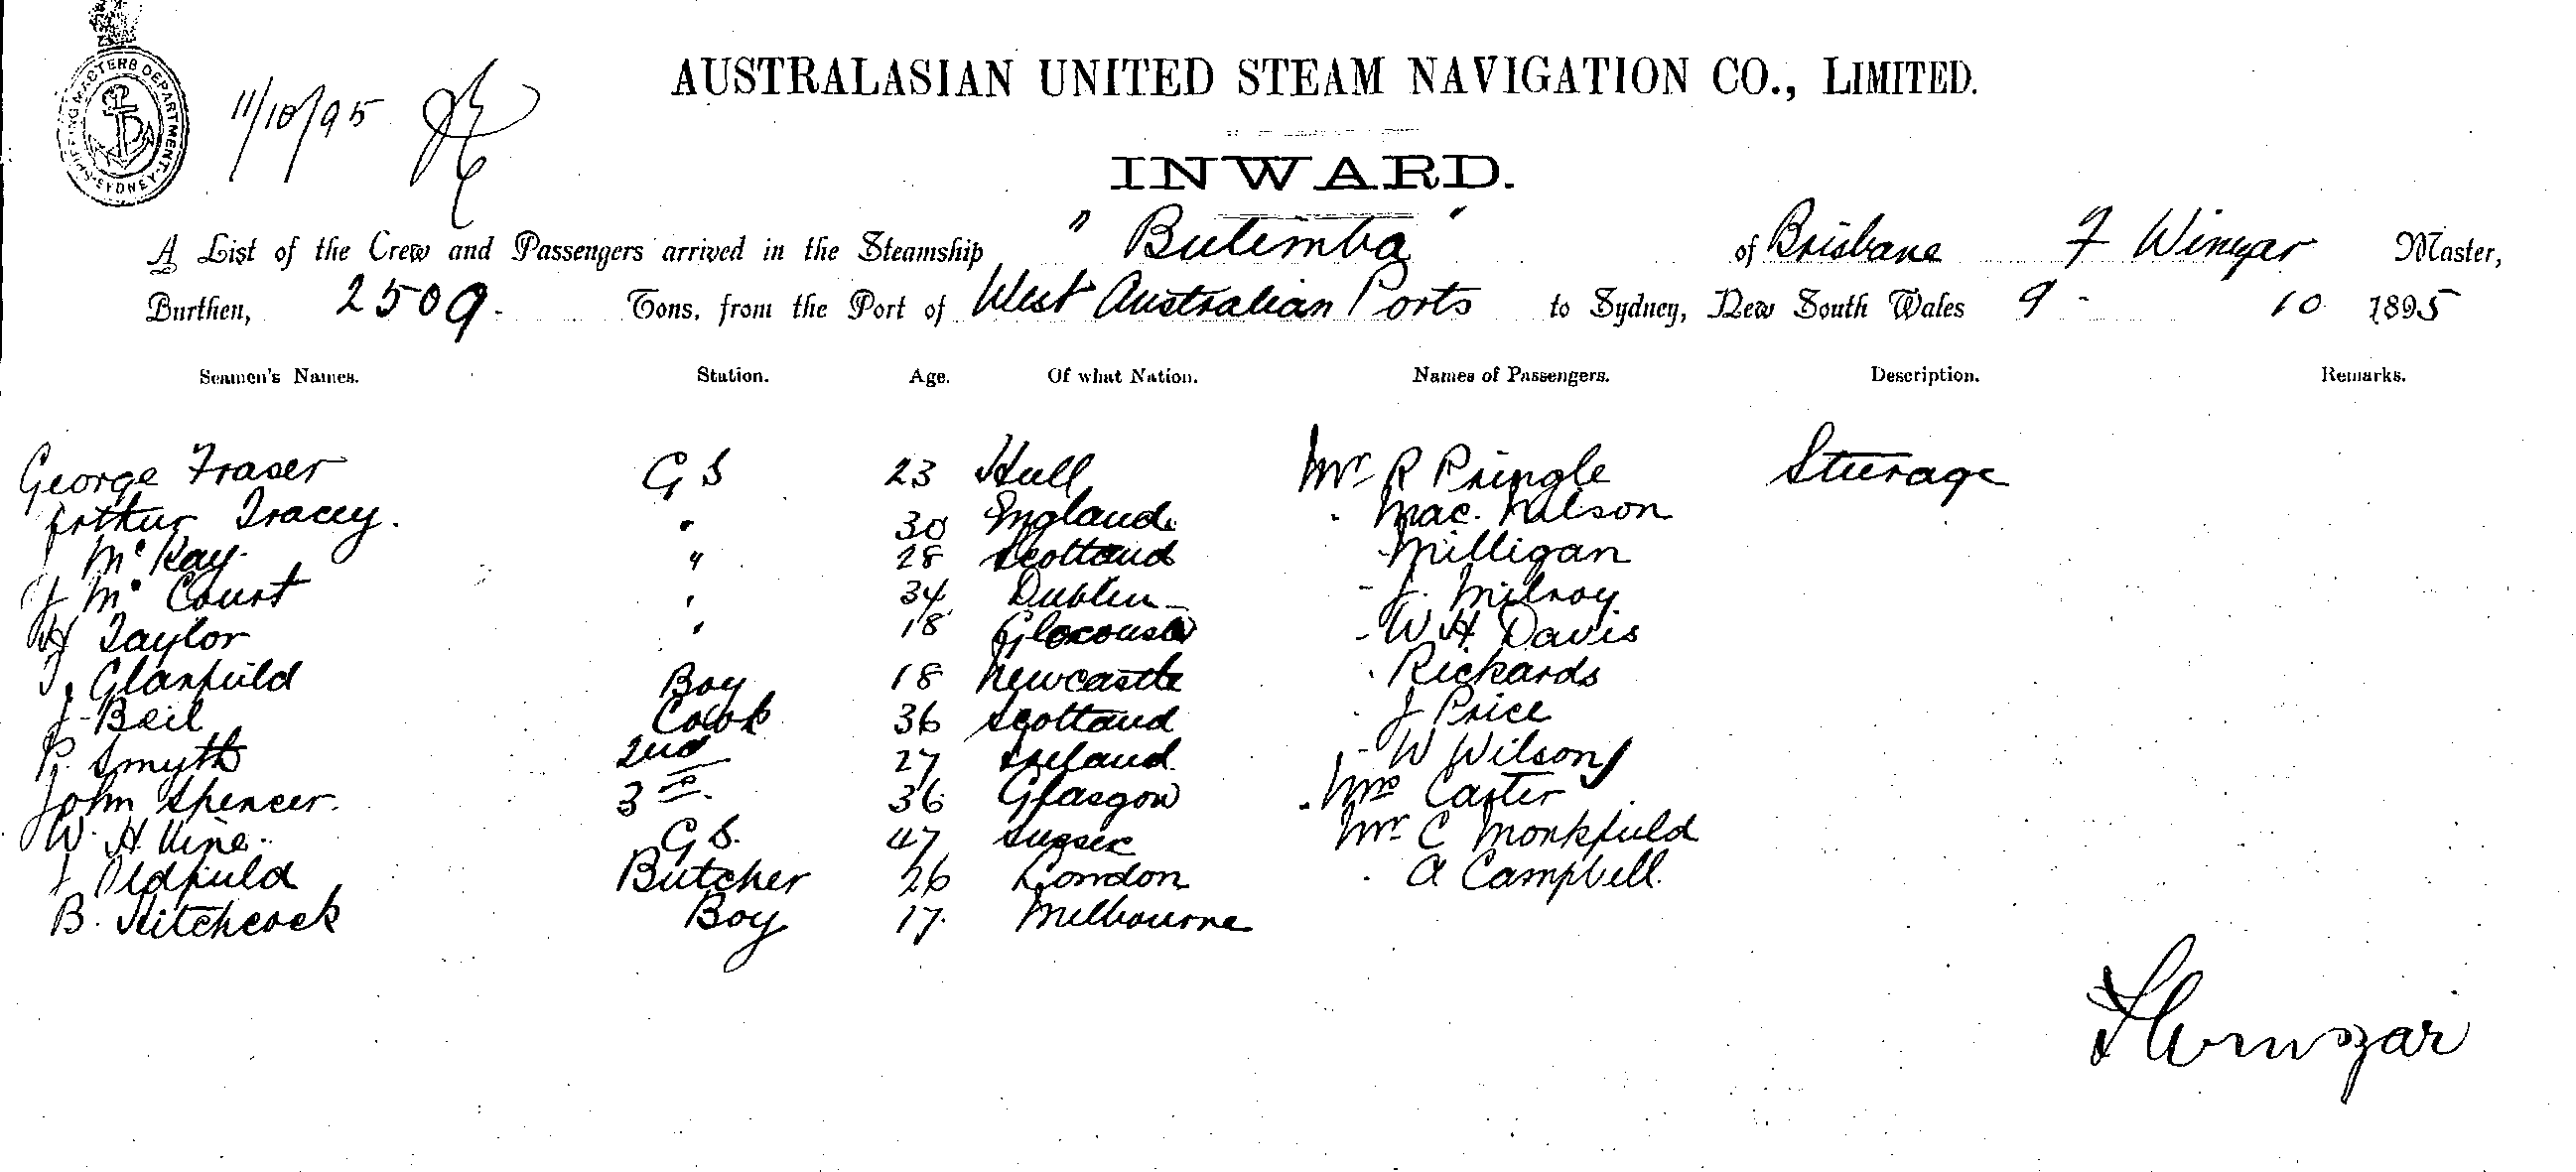 SHIPPING MASTERS DEPARTMENT SYDNEY
11/10/95
AUSTRALASIAN UNITED STEAM NAVIGATION CO., LIMITED.
INWARD.
A List of the Crew and Passengers arrived in the Steamship "Bulimba" of Brisbane F Winyar Master,
Burthen, 2509 Tons, from the Port of West Australian Ports to Sydney, New South Wales 9 - 10 1895
Seamen's Names. Station. Age. Of what Nation. Names of Passengers. Description. Remarks.
George Fraser G S 23 Hull Mr R Pringle Steerage
Arthur Tracey. " 30 England " Mac. Nilson
J McKay " 28 Scotland Milligan
J Mc Court " 34 Dublin - J. Milroy
H Taylor " 18 - W H Davis
T. Glanfield Boy 18 Newcastle Rickards
J Beil Cook 36 Scotland J Price
P. Smyth 2nd 27 Ireland - W Wilson
John Spencer. 3rd 36 Glasgow Mrs Carter
W. H. Vine G S. 47 Sussex Mr C Monkfield
J Oldfield Butcher 26 London A Campbell.
B. Hitchcock Boy 17 Melbourne